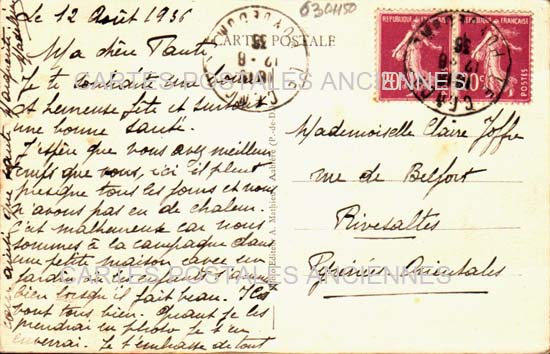 Le 12 Août 1936
Ma chère Tante
Je te souhaite une bonne
et heureuse fête et surtout
une bonne santé.
J'espère que vous avez meilleur
temps que nous, ici il pleut
presque tous les jours et nous
n'avons pas eu de chaleur.
C'est malheureux car nous
sommes à la campagne dans
une petite maison avec un
jardin où les enfants s'amusent
bien lorsqu'il fait beau. Ils
vont tous bien. Quand je les
prendrai en photo je t'en
enverrai. Je t'embrasse de tout
CARTE POSTALE
630450
RÉPUBLIQUE FRANÇAISE
20c
POSTES
12 - 8
36
Mademoiselle Claire Joffre
rue de Belfort
Rivesaltes
Pyrénées Orientales
Photo Editeur A. Mathieu, Ambert (P.-de-D.)
CARTES POSTALES ANCIENNES
CARTES POSTALES ANCIENNES